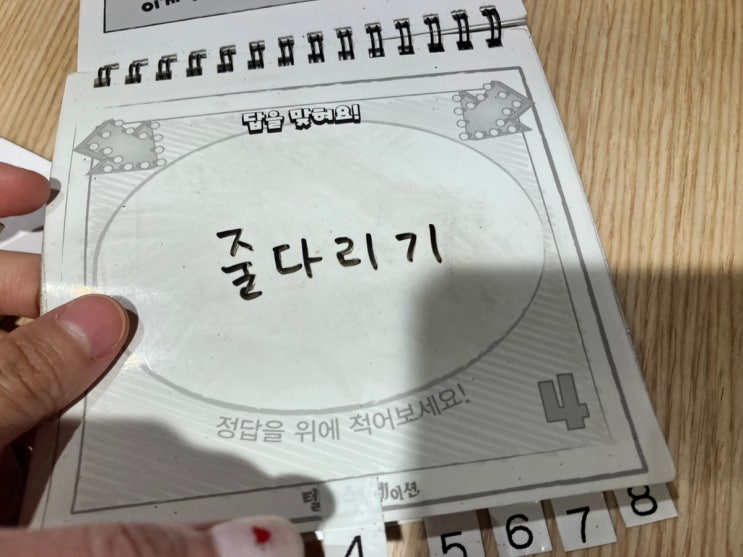 답을 맞혀요!
줄다리기
정답을 위에 적어보세요!
4
4 5 6 7 8